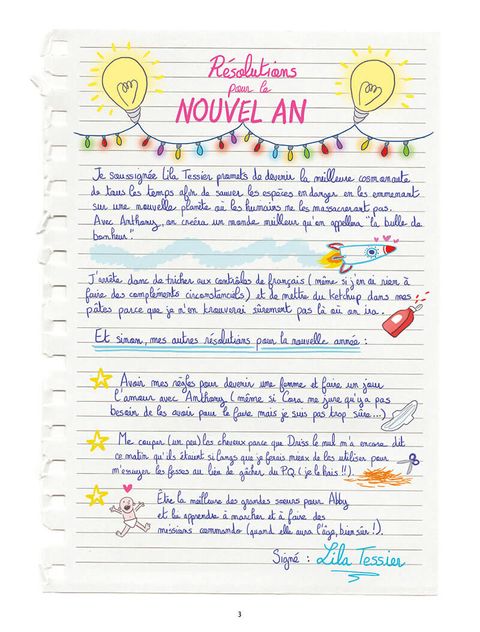 Résolutions
pour le
NOUVEL AN
Je soussignée Lila Tessier promets de devenir la meilleure cosmonaute
de tous les temps afin de sauver les espèces en danger en les emmenant
sur une nouvelle planète où les humains ne les massacreront pas.
Avec Anthony, on créera un monde meilleur qu'on appellera "la bulle du
bonheur".
J'arrête donc de tricher aux contrôles de français (même si j'en ai rien à
faire des compléments circonstanciels) et de mettre du ketchup dans mes
pâtes parce que je n'en trouverai sûrement pas là où on ira.
Et sinon, mes autres résolutions pour la nouvelle année :
Avoir mes règles pour devenir une femme et faire un jour
l'amour avec Anthony (même si Cora me jure qu'y a pas
besoin de les avoir pour le faire mais je suis pas trop sûre...)
Me couper (un peu) les cheveux parce que Driss le nul m'a encore dit
ce matin qu'ils étaient si longs que je ferais mieux de les utiliser pour
m'essuyer les fesses au lieu de gâcher du P.Q. (je le hais !!).
Etre la meilleure des grandes sœurs pour Abby
et lui apprendre à marcher et à faire des
missions commando (quand elle aura l'âge, bien sûr !).
Signé : Lila Tessier
3